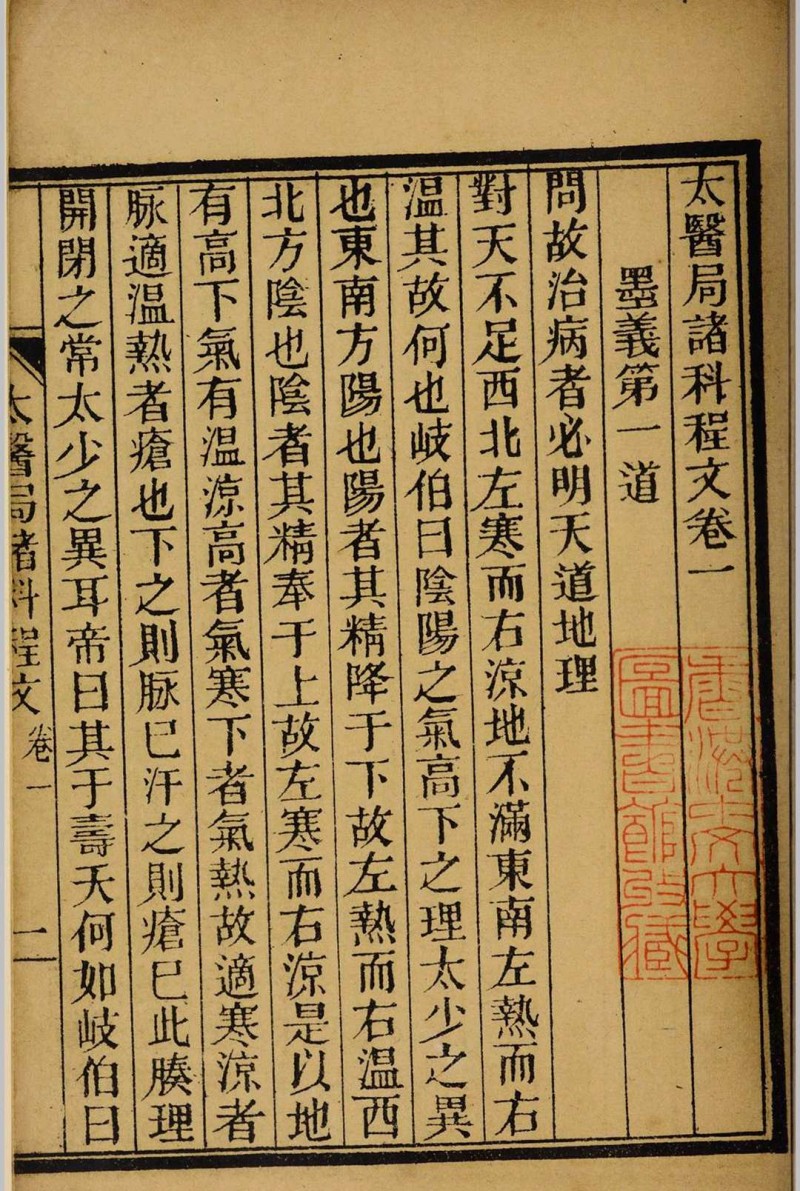 太醫局諸科程文卷一
墨義第一道
問故治病者必明天道地理
對天不足西北左寒而右涼地不滿東南左熱而右
温其故何也岐伯曰陰陽之氣高下之理太少之異
也東南方陽也陽者其精降于下故左熱而右温西
北方陰也陰者其精奉于上故左寒而右涼是以地
有高下氣有温涼高者氣寒下者氣熱故適寒涼者
脉適温熱者瘡也下之則脉已汗之則瘡已此腠理
開閉之常太少之異耳帝曰其于壽夭何如岐伯曰
太醫局諸科程文 卷一 二